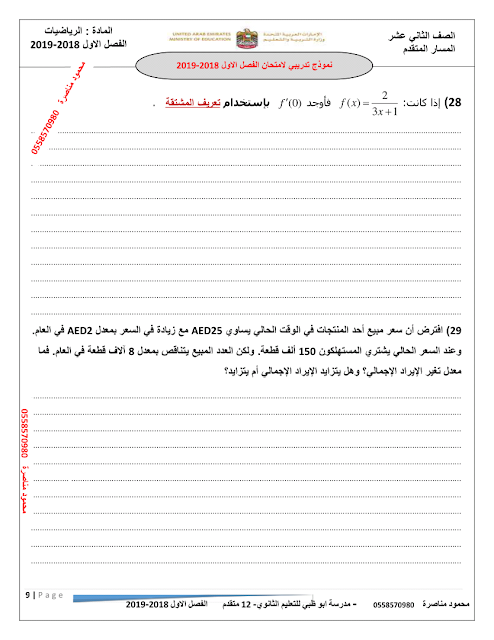 الصف الثاني عشر
المسار المتقدم
UNITED ARAB EMIRATES
MINISTRY OF EDUCATION
الإمارات العربية المتحدة
وزارة التربية والتعليم
المادة : الرياضيات
الفصل الاول 2018-2019
نموذج تدريبي لامتحان الفصل الاول 2018-2019
محمود مناصرة 0558570980
28) إذا كانت: f(x) = 2/(3x+1) فأوجد f'(0) بإستخدام تعريف المشتقة .
29) افترض أن سعر مبيع أحد المنتجات في الوقت الحالي يساوي AED25 مع زيادة في السعر بمعدل AED2 في العام.
وعند السعر الحالي يشتري المستهلكون 150 ألف قطعة. ولكن العدد المبيع يتناقص بمعدل 8 آلاف قطعة في العام. فما
معدل تغير الإيراد الإجمالي؟ وهل يتزايد الإيراد الإجمالي أم يتزايد؟
محمود مناصرة 0558570980
9 | Page
محمود مناصرة 0558570980 - مدرسة ابو ظبي للتعليم الثانوي- 12 متقدم الفصل الاول 2018-2019